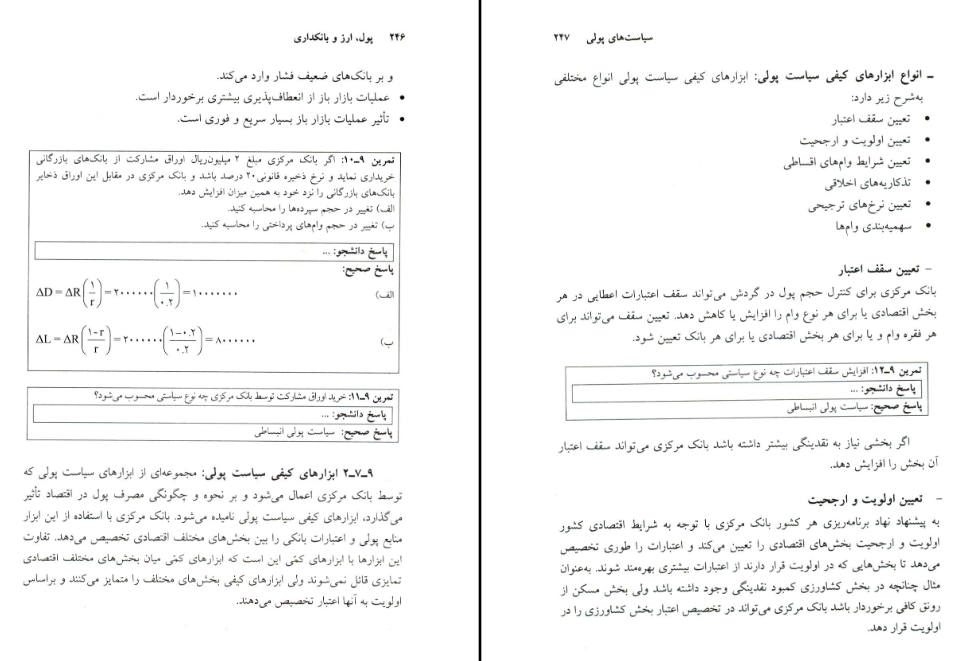 ۲۴۶ پول، ارز و بانکداری
و بر بانک‌های ضعیف فشار وارد می‌کند.
• عملیات بازار باز از انعطاف‌پذیری بیشتری برخوردار است.
• تأثیر عملیات بازار باز بسیار سریع و فوری است.
تمرین ۹ـ۱۰: اگر بانک مرکزی مبلغ ۲ میلیون‌ریال اوراق مشارکت از بانک‌های بازرگانی
خریداری نماید و نرخ ذخیره قانونی۲۰ درصد باشد و بانک مرکزی در مقابل این اوراق ذخایر
بانک‌های بازرگانی را نزد خود به همین میزان افزایش دهد.
الف) تغییر در حجم سپرده‌ها را محاسبه کنید.
ب) تغییر در حجم وام‌های پرداختی را محاسبه کنید.
پاسخ دانشجو: ...
پاسخ صحیح:
الف) ΔD = ΔR(۱/r) = ۲۰۰۰۰۰۰(۱/۰.۲) = ۱۰۰۰۰۰۰۰
ب) ΔL = ΔR(۱-r/r) = ۲۰۰۰۰۰۰(۱-۰.۲/۰.۲) = ۸۰۰۰۰۰۰
تمرین ۹ـ۱۱: خرید اوراق مشارکت توسط بانک مرکزی چه نوع سیاستی محسوب می‌شود؟
پاسخ دانشجو: ...
پاسخ صحیح: سیاست پولی انبساطی
۹ـ۷ـ۲ ابزارهای کیفی سیاست پولی: مجموعه‌ای از ابزارهای سیاست پولی که
توسط بانک مرکزی اعمال می‌شود و بر نحوه و چگونگی مصرف پول در اقتصاد تأثیر
می‌گذارد، ابزارهای کیفی سیاست پولی نامیده می‌شود. بانک مرکزی با استفاده از این ابزار
منابع پولی و اعتبارات بانکی را بین بخش‌های مختلف اقتصادی تخصیص می‌دهد. تفاوت
این ابزارها با ابزارهای کمّی این است که ابزارهای کمّی میان بخش‌های مختلف اقتصادی
تمایزی قائل نمی‌شوند ولی ابزارهای کیفی بخش‌های مختلف را متمایز می‌کنند و براساس
اولویت به آنها اعتبار تخصیص می‌دهند.
سیاست‌های پولی ۲۴۷
ـ انواع ابزارهای کیفی سیاست پولی: ابزارهای کیفی سیاست پولی انواع مختلفی
به‌شرح زیر دارد:
• تعیین سقف اعتبار
• تعیین اولویت و ارجحیت
• تعیین شرایط وام‌های اقساطی
• تذکاریه‌های اخلاقی
• تعیین نرخ‌های ترجیحی
• سهمیه‌بندی وام‌ها
– تعیین سقف اعتبار
بانک مرکزی برای کنترل حجم پول در گردش می‌تواند سقف اعتبارات اعطایی در هر
بخش اقتصادی یا برای هر نوع وام را افزایش یا کاهش دهد. تعیین سقف می‌تواند برای
هر فقره وام و یا برای هر بخش اقتصادی یا برای هر بانک تعیین شود.
تمرین ۹ـ۱۲: افزایش سقف اعتبارات چه نوع سیاستی محسوب می‌شود؟
پاسخ دانشجو: ...
پاسخ صحیح: سیاست پولی انبساطی
اگر بخشی نیاز به نقدینگی بیشتر داشته باشد بانک مرکزی می‌تواند سقف اعتبار
آن بخش را افزایش دهد.
– تعیین اولویت و ارجحیت
به پیشنهاد نهاد برنامه‌ریزی هر کشور بانک مرکزی با توجه به شرایط اقتصادی کشور
اولویت و ارجحیت بخش‌های اقتصادی را تعیین می‌کند و اعتبارات را طوری تخصیص
می‌دهد تا بخش‌هایی که در اولویت قرار دارند از اعتبارات بیشتری بهره‌مند شوند. به‌عنوان
مثال چنانچه در بخش کشاورزی کمبود نقدینگی وجود داشته باشد ولی بخش مسکن از
رونق کافی برخوردار باشد بانک مرکزی می‌تواند در تخصیص اعتبار بخش کشاورزی را در
اولویت قرار دهد.